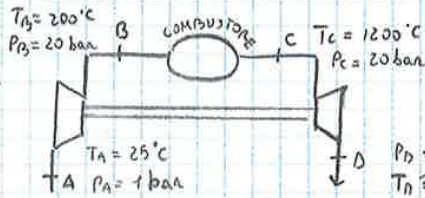 T_B = 200°C
P_B = 20 bar
B
COMBUSTORE
C
T_C = 1200°C
P_C = 20 bar
T_A = 25°C
A P_A = 1 bar
D
P_D
T_D